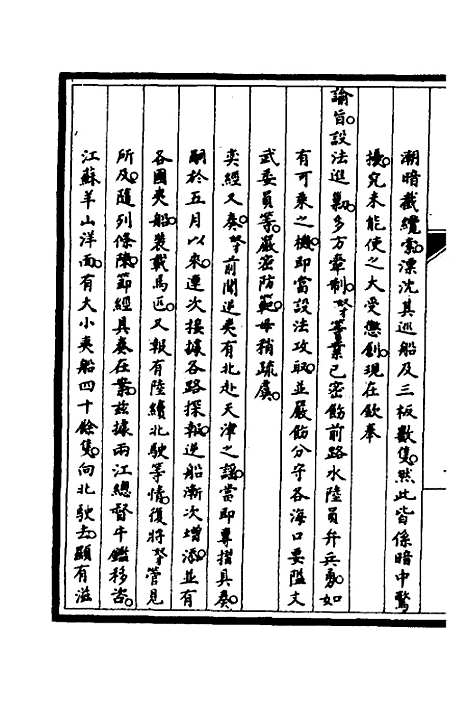 潮暗截纜索。漂沈其巡船及三板數隻。然此皆係暗中驚
擾。究未能使之大受懲創。現在欽奉
諭旨。設法進勦。多方牽制。等業已密飭前路水陸員弁兵勇。如
有可乘之機。即當設法攻取。並嚴飭分守各海口要隘文
武委員等。嚴密防範。毋稍疏虞。
奕經又奏。前聞逆夷有北赴天津之謠。當即專摺具奏。
嗣於五月以來。連次接據各路探報。逆船漸次增添。並有
各國夷船裝載馬匹。又報有陸續北駛等情。復將管見
所及。隨列條陳。節經具奏在案。茲據兩江總督牛鑑移咨。
江蘇羊山洋面。有大小夷船四十餘隻。向北駛去。顯有滋